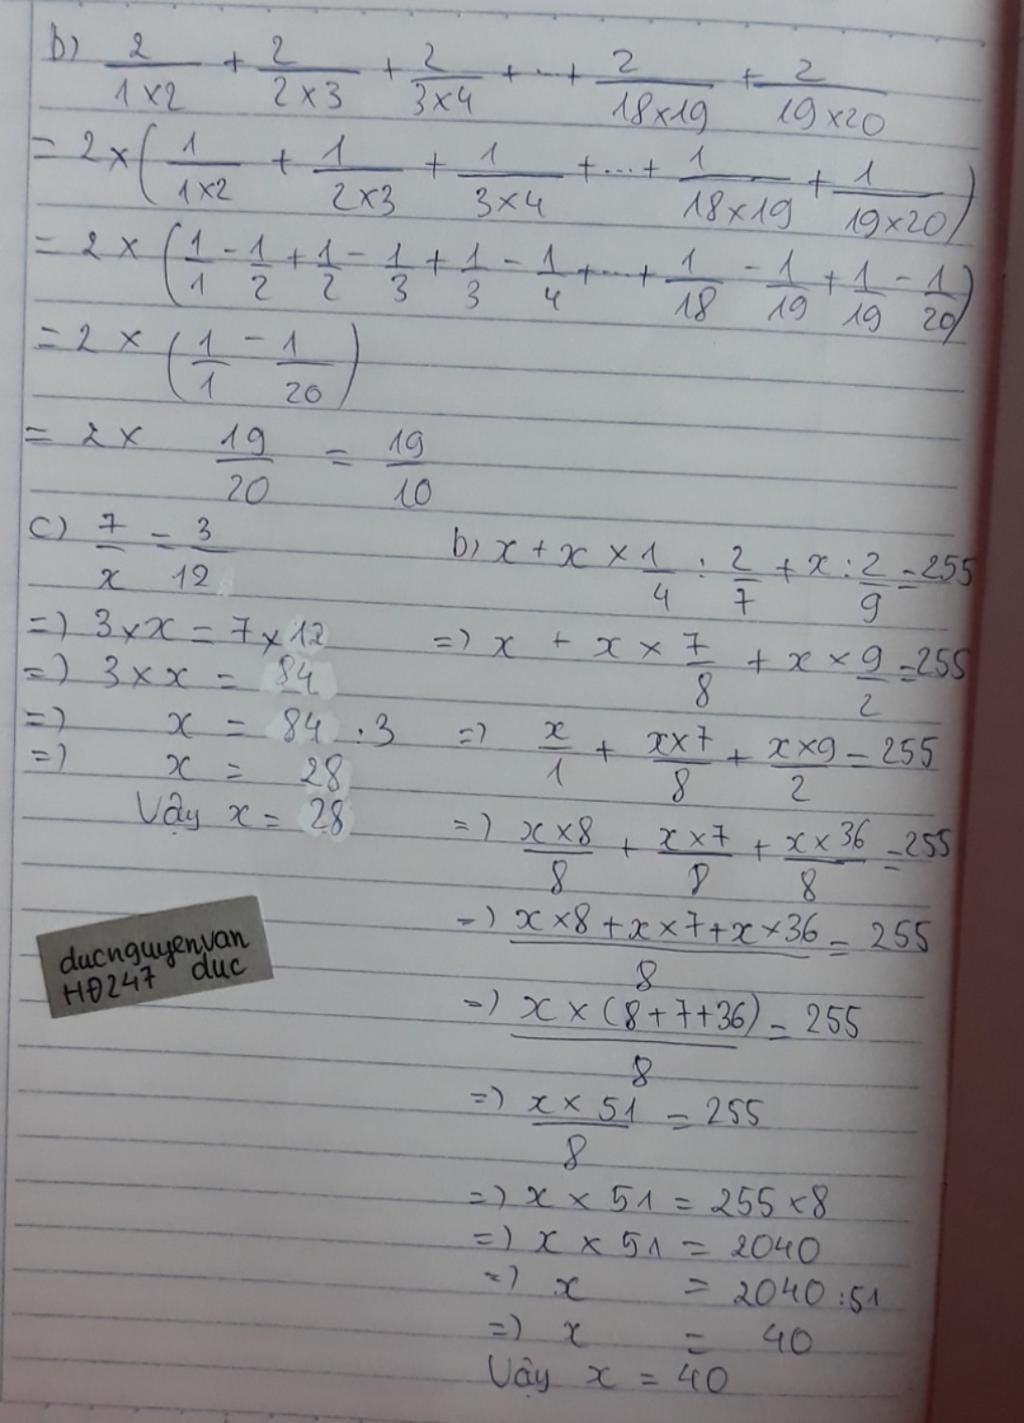 b) 2/(1×2) + 2/(2×3) + 2/(3×4) + ... + 2/(18×19) + 2/(19×20)
= 2 × (1/(1×2) + 1/(2×3) + 1/(3×4) + ... + 1/(18×19) + 1/(19×20))
= 2 × (1/1 - 1/2 + 1/2 - 1/3 + 1/3 - 1/4 + ... + 1/18 - 1/19 + 1/19 - 1/20)
= 2 × (1/1 - 1/20)
= 2 × 19/20 = 19/10
c) 7/x = 3/12
=) 3×x = 7×12
=) 3×x = 84
=) x = 84 : 3
=) x = 28
Vậy x = 28
b) x + x × 1/4 : 2/7 + x : 2/9 = 255
=) x + x × 7/8 + x × 9/2 = 255
=) x/1 + (x×7)/8 + (x×9)/2 = 255
=) (x×8)/8 + (x×7)/8 + (x×36)/8 = 255
=) (x×8 + x×7 + x×36)/8 = 255
=) (x × (8+7+36))/8 = 255
=) (x × 51)/8 = 255
=) x × 51 = 255 × 8
=) x × 51 = 2040
=) x = 2040 : 51
=) x = 40
Vậy x = 40
ducnguyenvan
HĐ247 duc